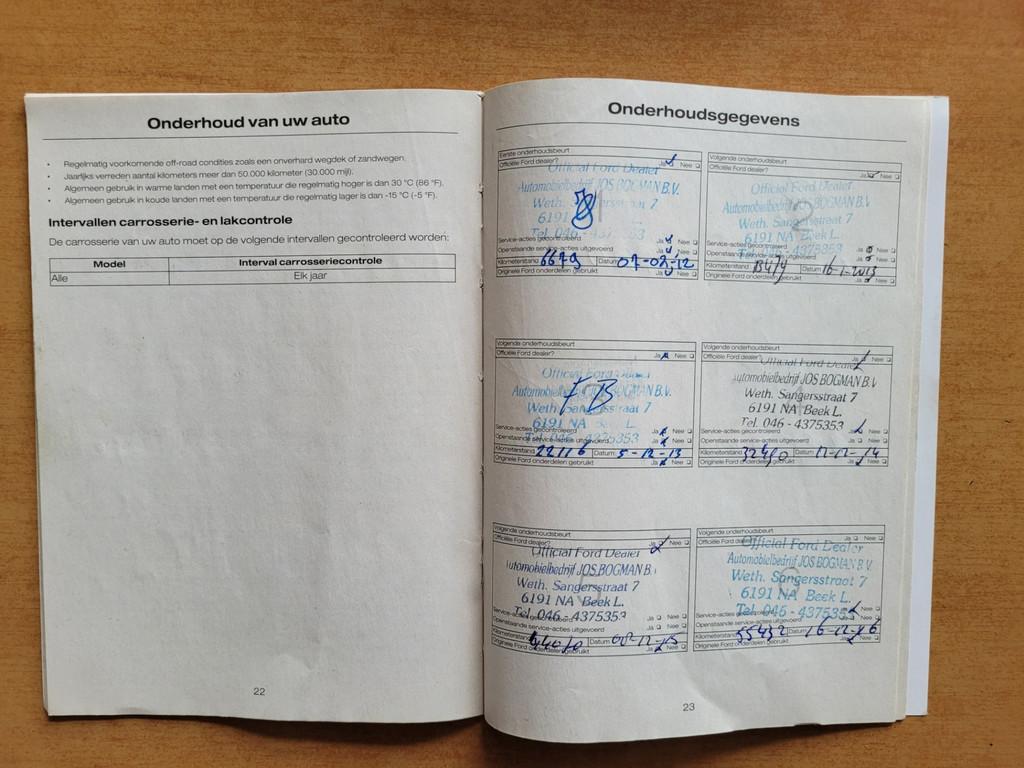 Onderhoud van uw auto
• Regelmatig voorkomende off-road condities zoals een onverhard wegdek of zandwegen.
• Jaarlijks verreden aantal kilometers meer dan 50.000 kilometer (30.000 mijl).
• Algemeen gebruik in warme landen met een temperatuur die regelmatig hoger is dan 30 °C (86 °F).
• Algemeen gebruik in koude landen met een temperatuur die regelmatig lager is dan -15 °C (-5 °F).
Intervallen carrosserie- en lakcontrole
De carrosserie van uw auto moet op de volgende intervallen gecontroleerd worden:
Model Interval carrosseriecontrole
Alle Elk jaar
22
Onderhoudsgegevens
Eerste onderhoudsbeurt
Officiële Ford dealer? Ja Nee
Official Ford Dealer
Automobielbedrijf JOS BOGMAN B.V.
Weth. 7
6191
Tel. 046
Service-acties gecontroleerd Ja Nee
Openstaande service-acties uitgevoerd Ja Nee
Kilometerstand 6679 Datum 07-02-12
Originele Ford onderdelen gebruikt Ja Nee
Volgende onderhoudsbeurt
Officiële Ford dealer? Ja Nee
Official Ford Dealer
Automobielbedrijf JOS BOGMAN B.V.
Weth. Sangersstraat 7
6191 NA Beek L.
Tel. 046 - 4375353
Service-acties gecontroleerd Ja Nee
Openstaande service-acties uitgevoerd Ja Nee
Kilometerstand Datum 16-1-2013
Originele Ford onderdelen gebruikt Ja Nee
Volgende onderhoudsbeurt
Officiële Ford dealer? Ja Nee
Official Ford Dealer
Automobielbedrijf JOS BOGMAN B.V.
FB
Weth. Sangersstraat 7
6191 NA Beek L.
Tel. 046 - 4375353
Service-acties gecontroleerd Ja Nee
Openstaande service-acties uitgevoerd Ja Nee
Kilometerstand 22116 Datum: 5-12-13
Originele Ford onderdelen gebruikt Ja Nee
Volgende onderhoudsbeurt
Officiële Ford dealer? Ja Nee
Official Ford Dealer
Automobielbedrijf JOS BOGMAN B.V.
Weth. Sangersstraat 7
6191 NA Beek L.
Tel. 046 - 4375353
Service-acties gecontroleerd Ja Nee
Openstaande service-acties uitgevoerd Ja Nee
Kilometerstand Datum
Originele Ford onderdelen gebruikt Ja Nee
Volgende onderhoudsbeurt
Officiële Ford dealer? Ja Nee
Official Ford Dealer
Automobielbedrijf JOS BOGMAN B.
Weth. Sangersstraat 7
6191 NA Beek L.
Tel. 046 - 4375353
Service-acties gecontroleerd Ja Nee
Openstaande service-acties uitgevoerd Ja Nee
Kilometerstand Datum 08-12-15
Originele Ford onderdelen gebruikt Ja Nee
Volgende onderhoudsbeurt
Officiële Ford dealer? Ja Nee
Official Ford Dealer
Automobielbedrijf JOS BOGMAN B.V.
Weth. Sangersstraat 7
6191 NA Beek L.
Tel. 046 - 4375353
Service-acties gecontroleerd Ja Nee
Openstaande service-acties uitgevoerd Ja Nee
Kilometerstand 55432 Datum 16-12-16
Originele Ford onderdelen gebruikt Ja Nee
23